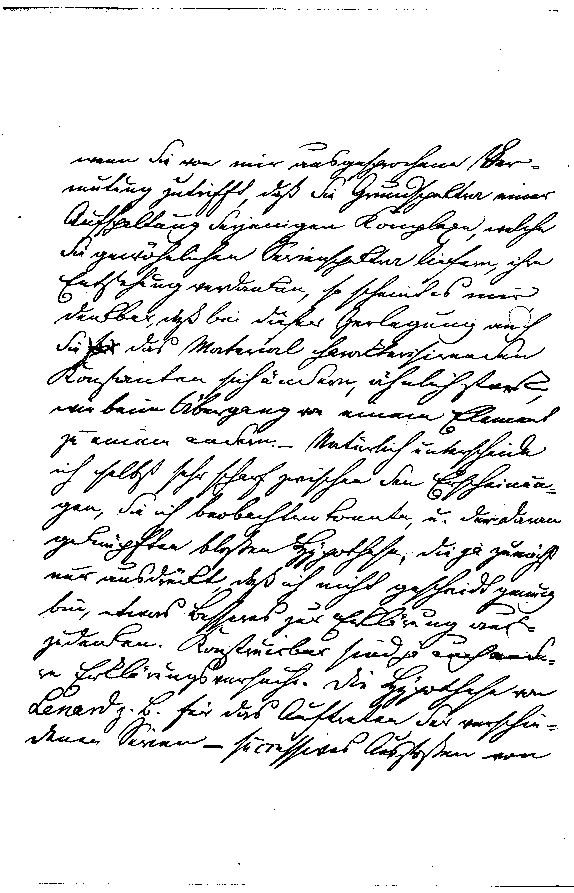 wenn die von mir ausgesprochene Ver-
mutung zutrifft, daß die Grundspektra einer
Aufspaltung derjenigen Komplexe, welche
die gewöhnlichen Serienspektra liefern, ihre
Entstehung verdanken, so scheint es mir
denkbar, daß bei dieser Zerlegung auch
die das Material charakterisirenden
Konstanten sich ändern, ähnlich stark,
wie beim Übergang von einem Element
zu einem andern. – Natürlich unterscheide
ich selbst sehr scharf zwischen den Erscheinun-
gen, die ich beobachten konnte, u. der daran
geknüpften bloßen Hypothese, die ja zunächst
nur ausdrückt, daß ich nicht gescheidt genug
bin, etwas besseres zur Erklärung aus-
zudenken. Konstruirbar sind ja auch ande-
re Erklärungsversuche. Die Hypothese von
Lenard z. B. für das Auftreten der verschie-
denen Serien – successives Ausstoßen von